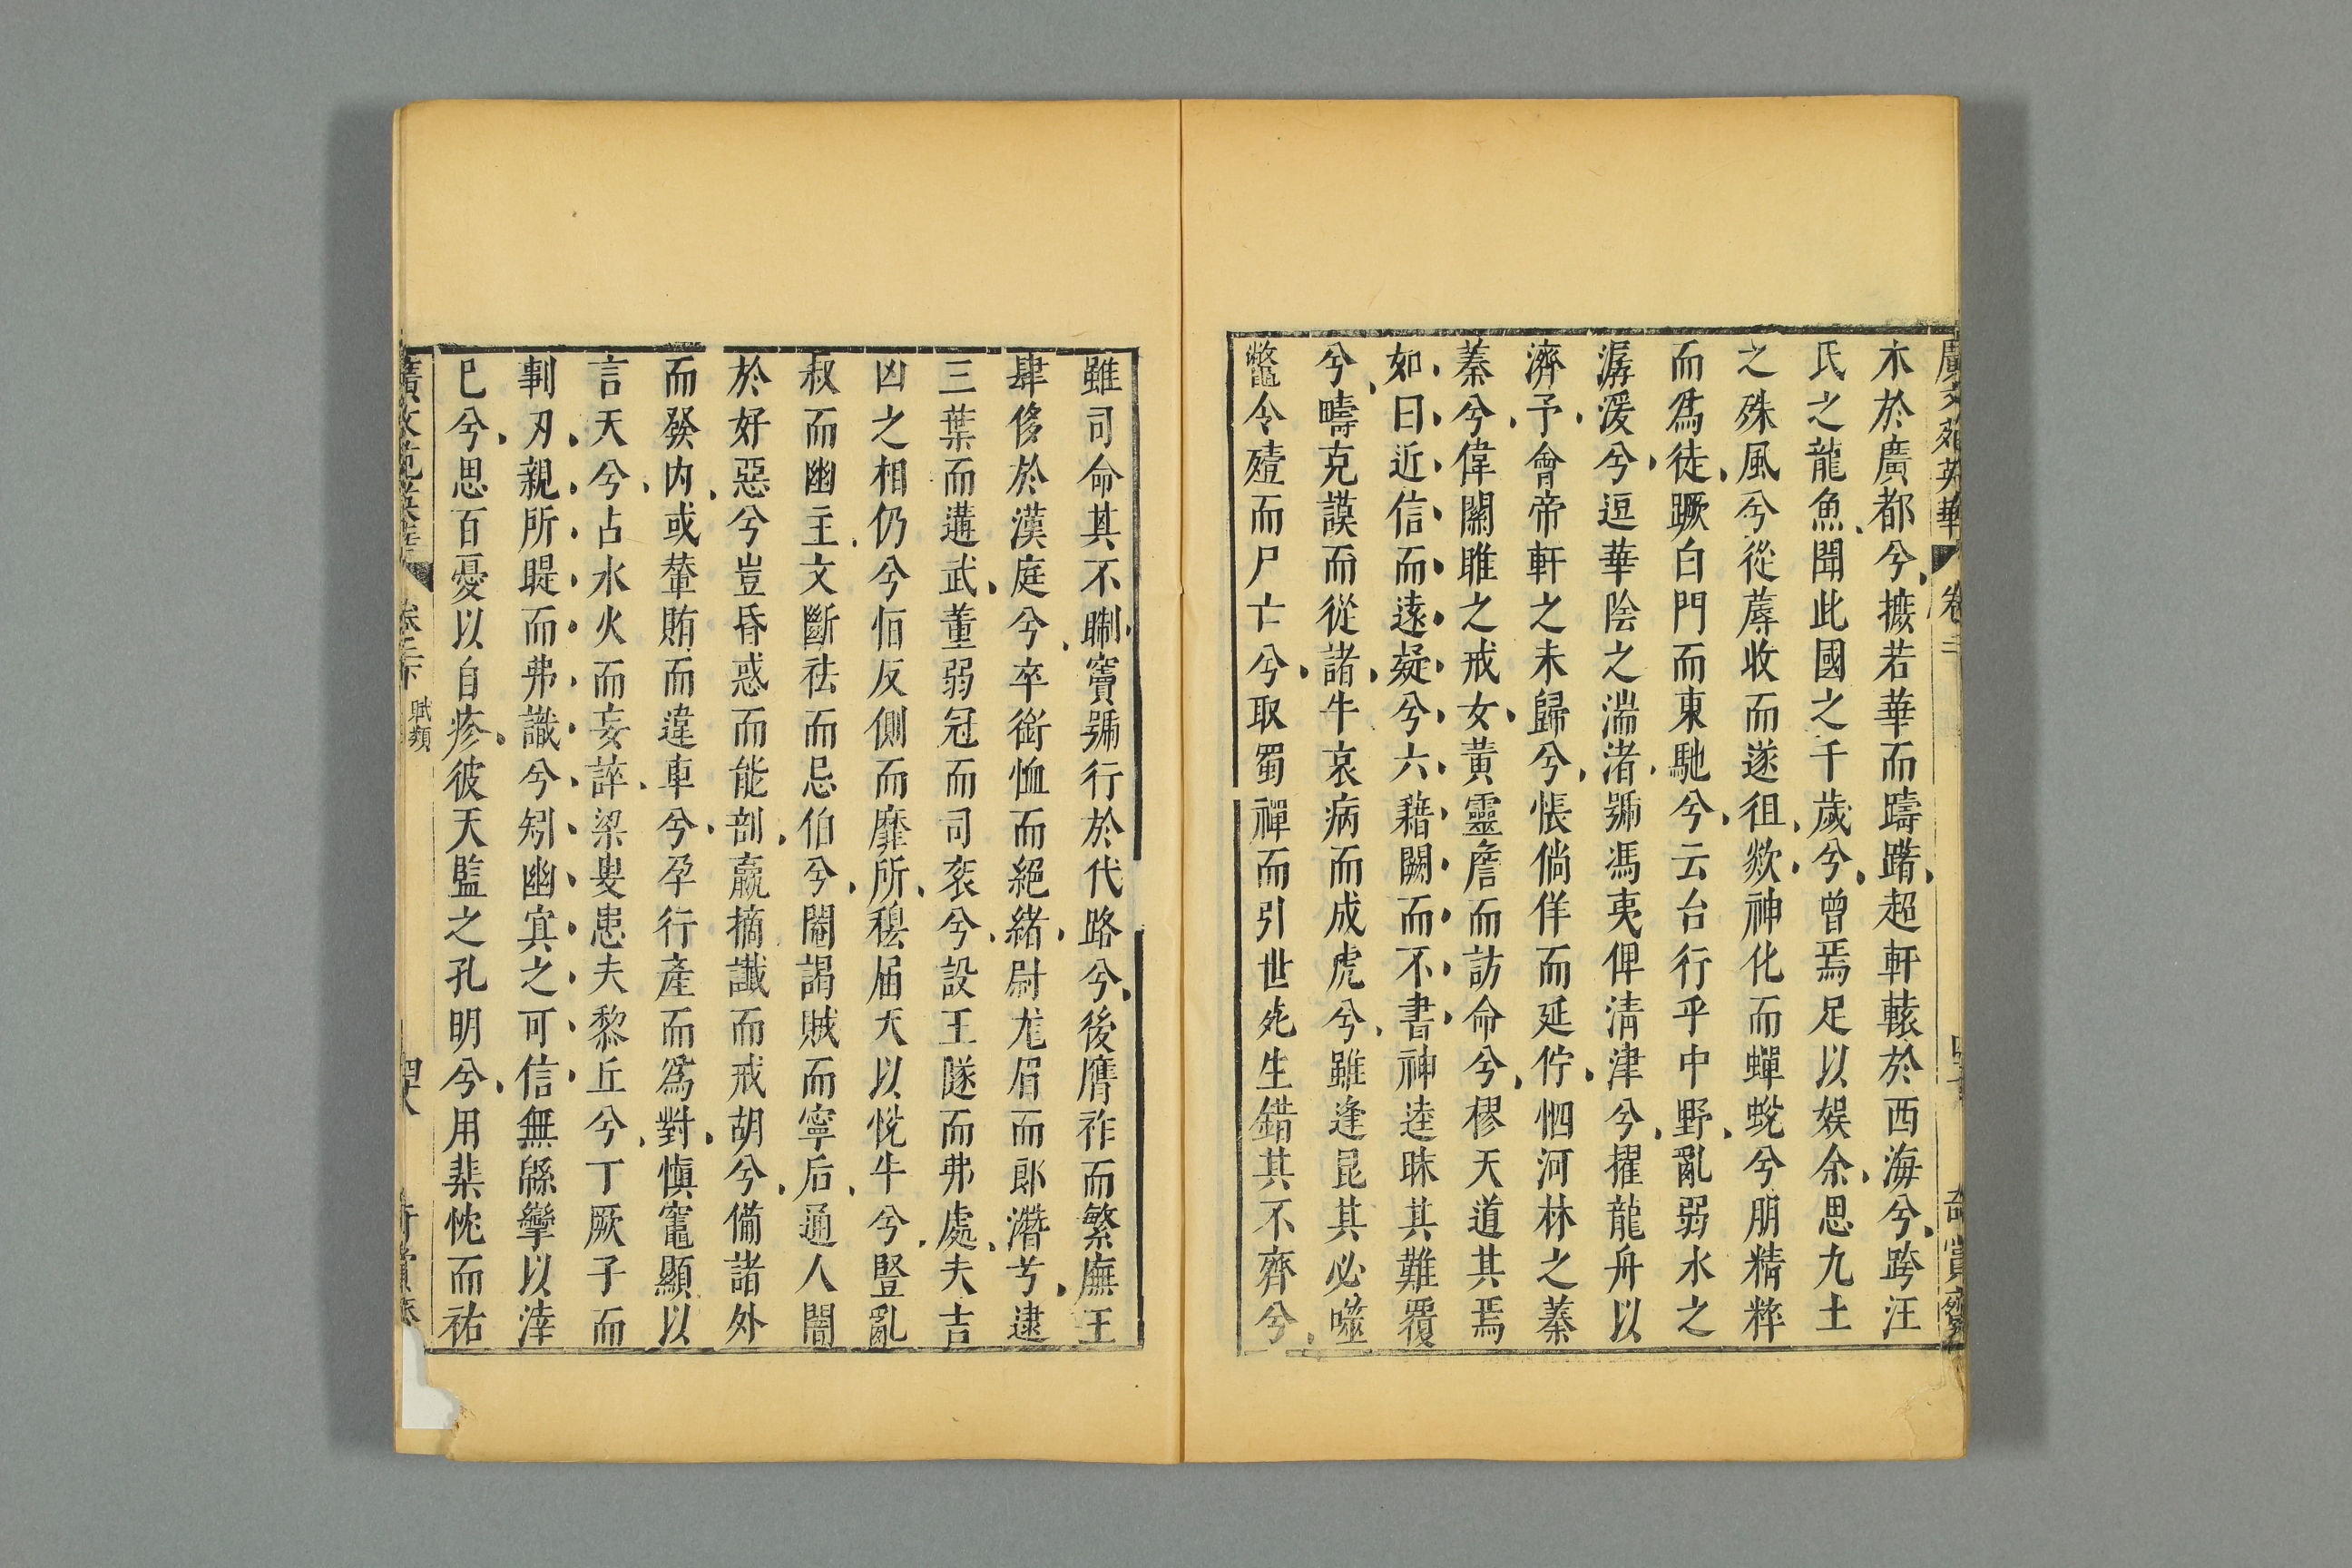 廣文苑英華 卷二 奇賞齋
木於廣都兮摭若華而躊躇超軒轅於西海兮跨汪
氏之龍魚聞此國之千歲兮曾焉足以娛余思九土
之殊風兮從蓐收而遂徂欻神化而蟬蛻兮朋精粹
而爲徒蹶白門而東馳兮云台行乎中野亂弱水之
潺湲兮逗華陰之湍渚號馮夷俾清津兮擢龍舟以
濟予會帝軒之未歸兮悵倘佯而延佇怬河林之蓁
蓁兮偉關雎之戒女黃靈詹而訪命兮樛天道其焉
如曰近信而遠疑兮六籍闕而不書神逵昧其難覆
兮疇克謨而從諸牛哀病而成虎兮雖逢昆其必噬
鼈令殪而尸亡兮取蜀禪而引世死生錯其不齊兮
雖司命其不䀸竇號行於代路兮後膺祚而繁廡王
肆侈於漢庭兮卒銜恤而絕緒尉尨眉而郎潛兮逮
三葉而遘武董弱冠而司衮兮設王隧而弗處夫吉
凶之相仍兮恒反側而靡所穆屆天以悅牛兮豎亂
叔而幽主文斷祛而忌伯兮閹謁賊而寧后通人闇
於好惡兮豈昏惑而能剖嬴擿讖而戒胡兮備諸外
而發内或輦賄而違車兮孕行產而爲對慎竈顯以
言天兮占水火而妄誶梁叟患夫黎丘兮丁厥子而
剚刃親所睼而弗識兮矧幽冥之可信無緜攣以涬
已兮思百憂以自疹彼天監之孔明兮用棐忱而祐
廣文苑英華 卷二下 賦類 四八 奇賞齋